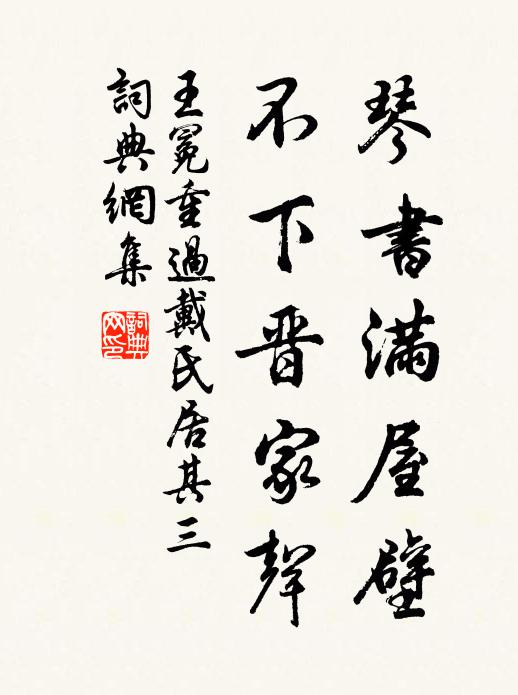 琴書滿屋壁
不下晋家聲
王冕重過戴氏居其三
詞典網集
詞典網印